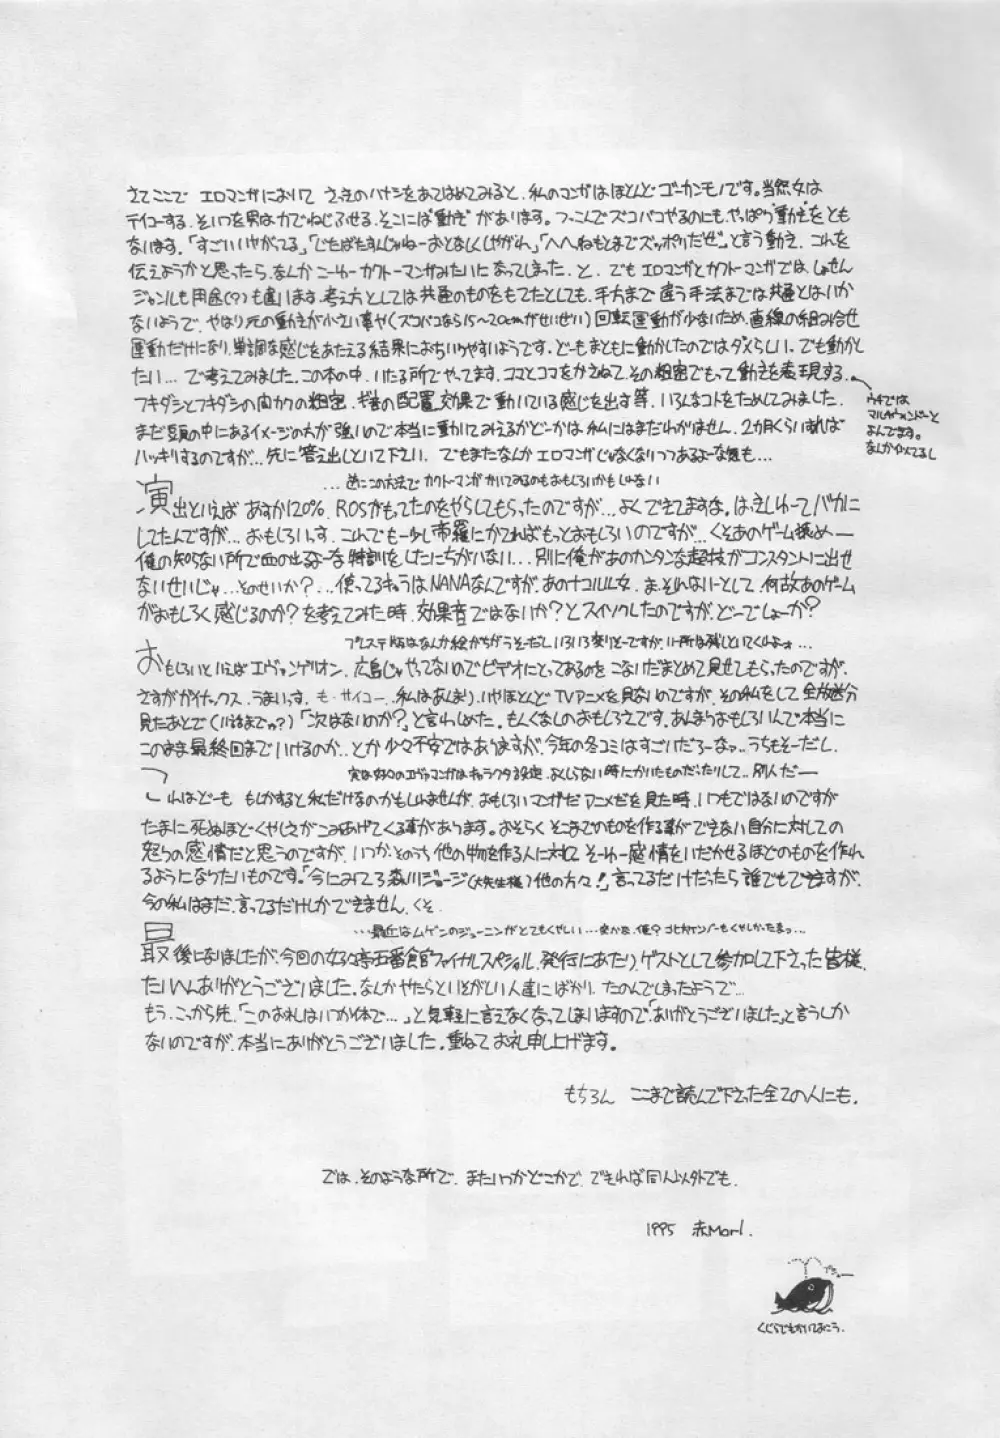 さてここで エロマンガにおいて さっきのハナシをあてはめてみると、私のマンガはほとんどゴーカンモノです。当然女は
テイコーする、そいつを男は力でねじふせる、そこには"動き"があります。つっこんでズコバコやるのにも、やっぱり"動き"をとも
ないます。「すごいいやがってる」「じたばたすんじゃねーおとなしくしやがれ」「へへ、ねもとまでズッポリだぜ」と言う動き、これを
伝えようかと思ったら、なんかこーゆーカクトーマンガみたいになってしまった、と、でもエロマンガとカクトーマンガでは、しょせん
ジャンルも用途(?)も違います、考え方としては共通のものをもてたとしても、手法までは共通とはいか
ないようで、やはり元の動きが小さい事や(ズコバコなら15〜20cmがせいぜい)回転運動が少ないため、直線の組み合せ
運動だけになり、単調な感じをあたえる結果におちいりやすいようです。どーもまともに動かしたのではダメらしい、でも動かし
たい… で考えてみました。この本の中、いたる所でやってます、コマとコマをかさねて、その粗密でもって動きを表現する、
ウチでは
マルチウィンドーと
よんでます。
フキダシとフキダシの間かくの粗密、配置効果で動いている感じを出す等、いろんなコトをためしてみました、
まだ頭の中にあるイメージの方が強いので本当に動いてみえるかどーかは、私にはまだわかりません、2カ月くらいすれば
ハッキリするのですが…先に答え出しといて下さい、でもまたなんか エロマンガじゃなくなりつつあるよーな気も…
…逆にこの方法で カクトーマンガかいてみるのもおもしろいかもしんない
演出といえば あすか120%、ROSがもってたのをやらしてもらったのですが…よくできてますなぁ。はっきしゆってバカに
してたんですが…おもしろいっす、これでもー少し常羅にかてればもっとおもしろいのですが…くそあのゲーム極めー
俺の知らない所で血の出るよーな特訓をしたにちがいない…別に俺があのカンタンな超技がコンスタントに出せ
ないせいじゃ…そのせいか?…使ってるキャラはNANAなんですが、あのナコルル女、ま、それはいーとして、何故あのゲーム
がおもしろく感じるのか?を考えてみた時、効果音ではないか?とスイソクしたのですが、どーでしょーか?
プレステ版はなんか絵がちがうそーだしいろいろ変りそーですが、いい所は残しといてくれよォ…
おもしろいといえば エヴァンゲリオン、広島じゃやってないのでビデオにとってあるのをこないだまとめて見せてもらったのですが、
さすがガイナックス、うまいっす、も、サイコー、私はあんまり、いやほとんどTVアニメを見ないのですが、その私をして全放送分
見たあとで「次はないのか?」と言わしめた、もんくなしのおもしろさです、あんまりおもしろいんで本当に
このまま最終回までいけるのか…とか少々不安ではありますが、今年の冬コミはすごいだろーなァ…うちもそーだし、
実は のエヴァマンガはキャラクタる設定、よくしらない時にかいたものだったりして…別人だー
これはどーも もしかすると私だけなのかもしれませんが、おもしろいマンガだアニメだを見た時、いつもではないのですが
たまに死ぬほどくやしさがこみあげてくる事があります。おそらくそこまでのものを作る事ができない自分に対しての
怒りの感情だと思うのですが、いつか、そのうち他の物を作る人に対して そーゆー感情をいだかせるほどのものを作れ
るようになりたいものです。「今にみてろ森川ジョージ(大先生様)他の方々!」言ってるだけだったら誰でもできますが、
今の私はまだ、言ってるだけしかできません、くそ
…最近はムゲンのジューニンがとてもくやしい…
最後になりましたが、今回の女々亭五番館ファイナルスペシャル、発行にあたり、ゲストとして参加して下さった皆様、
たいへんありがとうございました、なんかやたらといそがしい人達にばかり、たのんでしまったようで…
もう、こっから先、「このお礼はいつか体で…」と気軽に言えなくなってしまいますので、「ありがとうございました」と言うしか
ないのですが、本当にありがとうございました、重ねてお礼申し上げます。
もちろん ここまで読んで下さった全ての人にも、
では、そのような所で、またいつかどこかで、できれば同人以外でも、
1995 赤Marl.
くじらでもかいておこう、